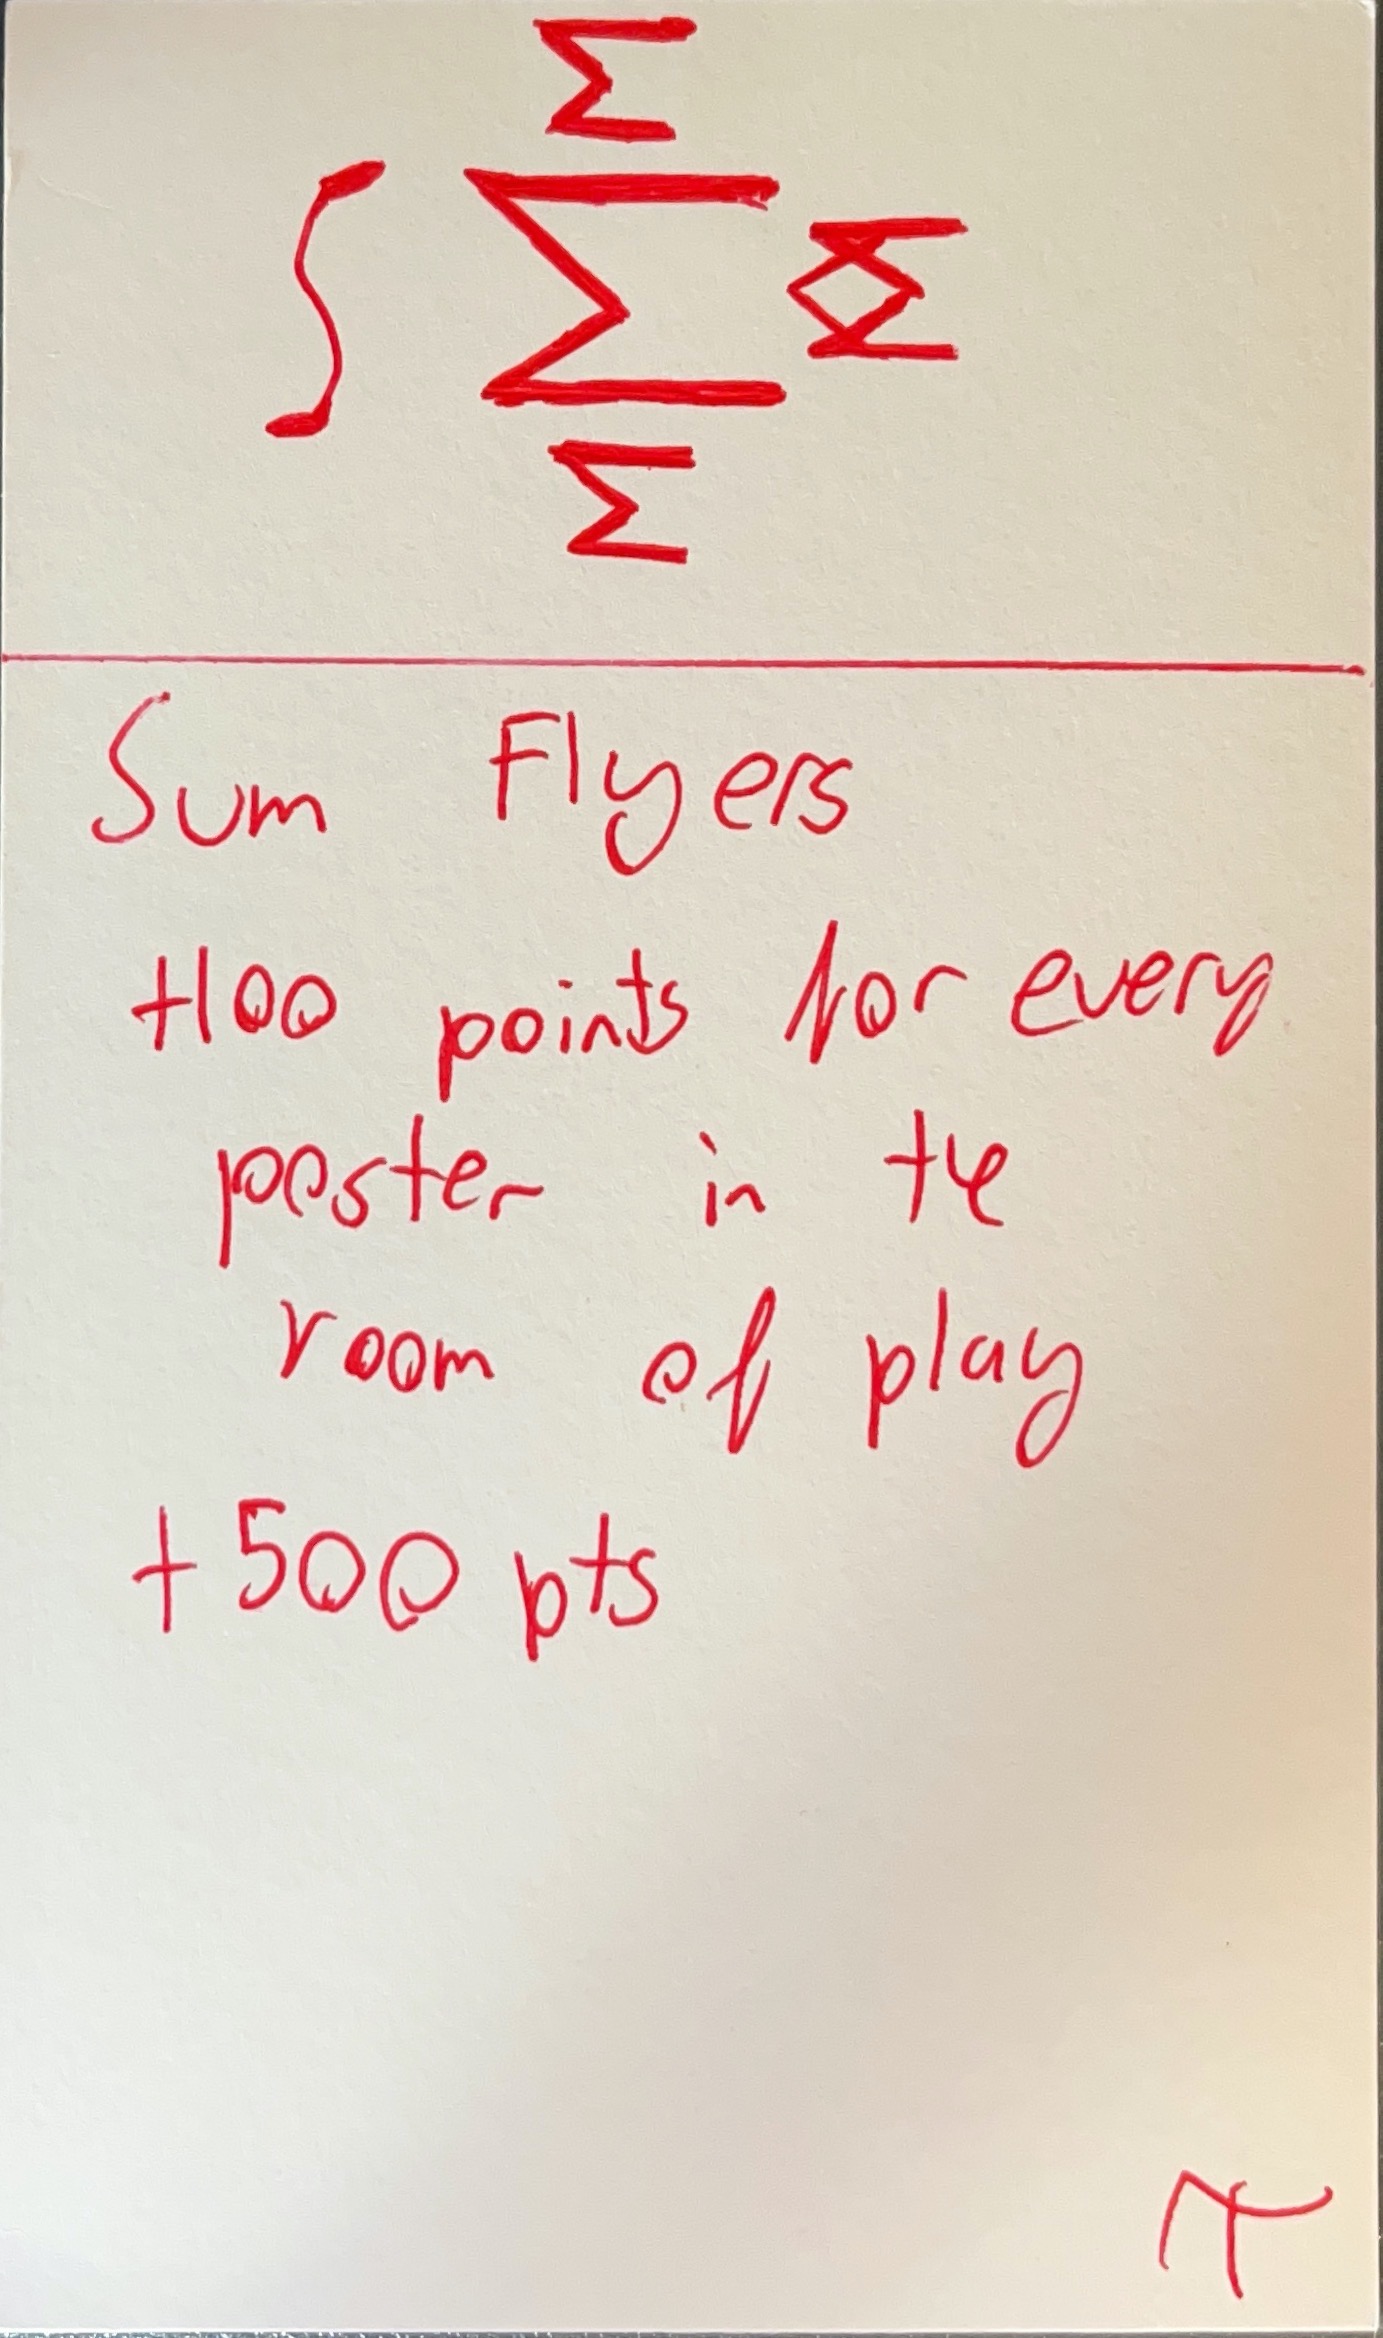 Σ
∫ Σ Σ
Σ
Sum Flyers
+100 points for every
poster in the
room of play
+500 pts